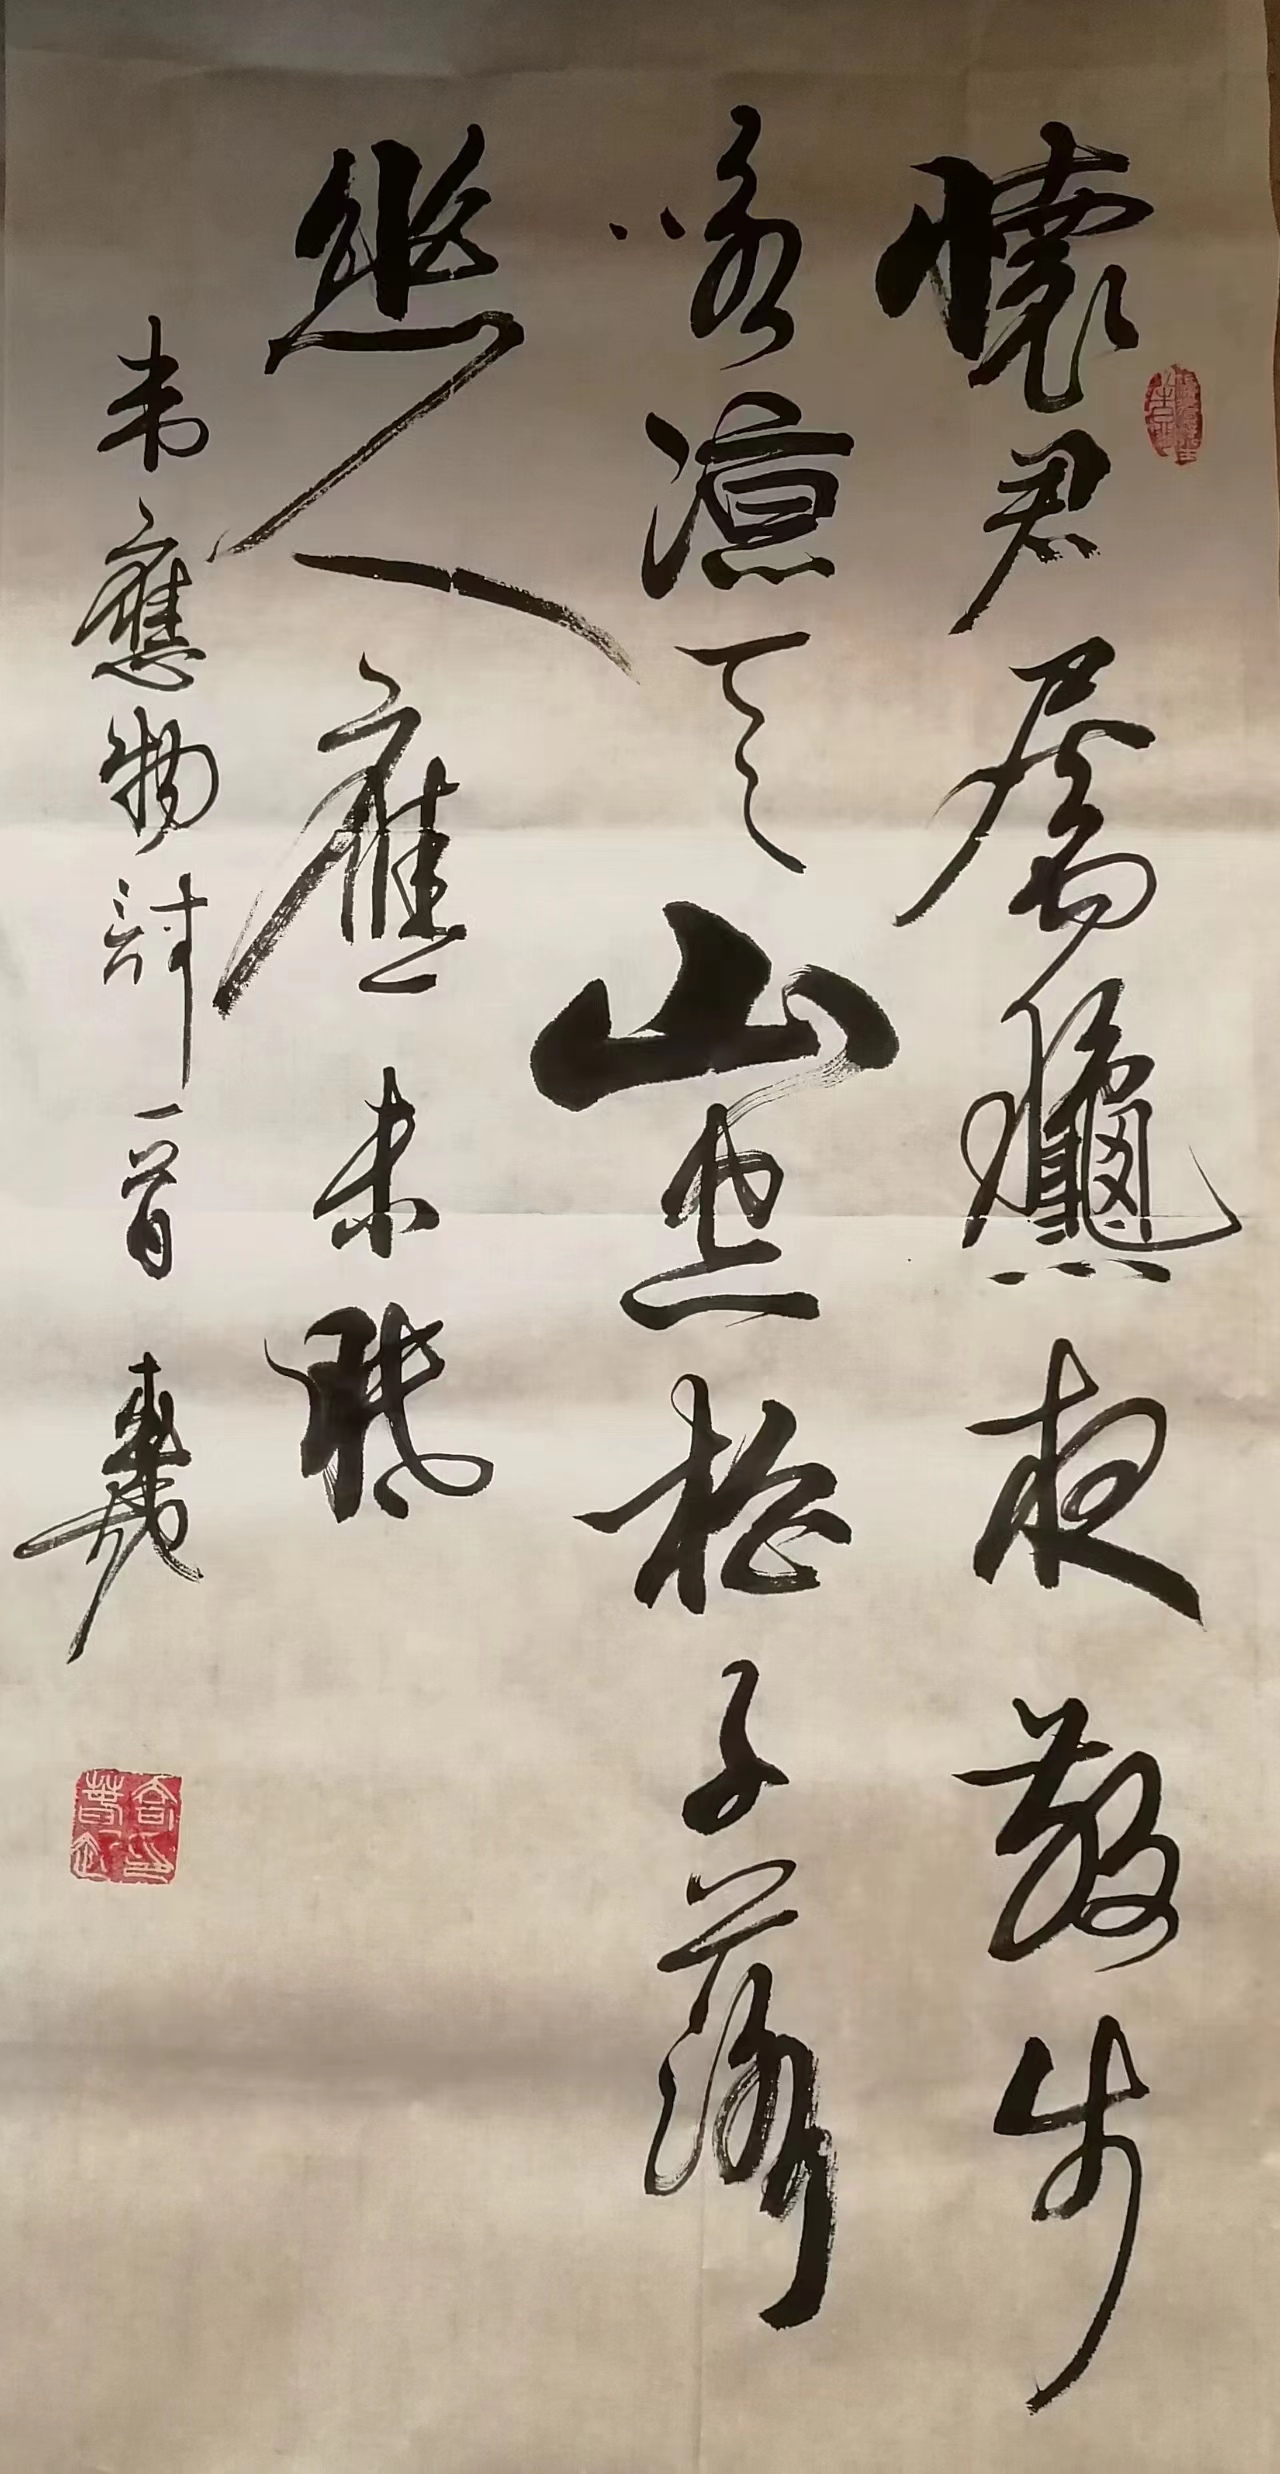 懷君屬穐夜散步
咏凉天山空松子落
幽人應未眠
韦應物詩一首